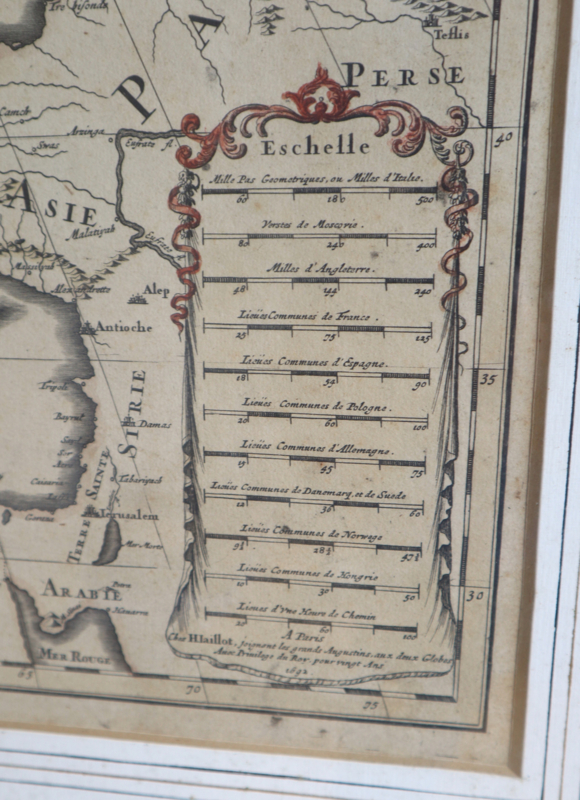 Teflis
PERSE
P
A
40
Arzinga
Eufrate fl.
Eschelle
Mille Pas Geometriques, ou Milles d'Italie.
60 180 500
Verstes de Moscovie.
80 240 400
ASIE
Malatiyah
Milles d'Angleterre.
48 144 240
Alep
Antioche
Lieües Communes de France.
25 75 125
35
Lieües Communes d'Espagne.
18 54 90
SIRIE
Tripoli
Lieües Communes de Pologne.
20 60 100
Damas
Lieües Communes d'Allemagne.
15 45 75
TERRE SAINTE
Lieües Communes de Danemarq, et de Suede
12 36 60
Ierusalem
Lieües Communes de Norwege
9½ 28½ 47½
Mer Morte
Lieües Communes de Hongrie
10 30 50
30
ARABIE
Petra
Lieües d'Vne Heure de Chemin
20 60 100
A Paris
Chez H. Iaillot, joignant les grands Augustins, aux deux Globes
Avec Privilege du Roy, pour vingt Ans
1692
MER ROUGE
65 70 75